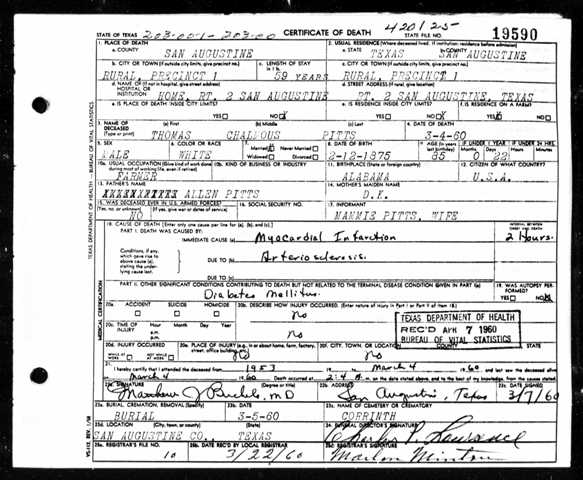 STATE OF TEXAS 203-001-203-00 CERTIFICATE OF DEATH 420125
STATE FILE NO. 19590
1. PLACE OF DEATH 2. USUAL RESIDENCE (Where deceased lived. If institution: residence before admission)
a. COUNTY SAN AUGUSTINE a. STATE TEXAS b. COUNTY SAN AUGUSTINE
b. CITY OR TOWN (If outside city limits, give precinct no.) c. LENGTH OF STAY c. CITY OR TOWN (If outside city limits, give precinct no.)
RURAL, PRECINCT 1 59 YEARS RURAL, PRECINCT 1
d. NAME OF (If not in hospital, give street address) HOSPITAL OR INSTITUTION d. STREET ADDRESS (If rural, give location)
HOME, RT 2 SAN AUGUSTINE RT. 2 SAN AUGUSTINE, TEXAS
e. IS PLACE OF DEATH INSIDE CITY LIMITS? e. IS RESIDENCE INSIDE CITY LIMITS? f. IS RESIDENCE ON A FARM?
YES NO YES NO YES NO
3. NAME OF DECEASED (Type or print) (a) First (b) Middle (c) Last 4. DATE OF DEATH
THOMAS PITTS 3-4-60
5. SEX 6. COLOR OR RACE 7. Married Never Married 8. DATE OF BIRTH 9. AGE IF UNDER 1 YEAR IF UNDER 24 HRS.
MALE WHITE Widowed Divorced 2-12-1875 85 0 22
10a. USUAL OCCUPATION (Give kind of work done during most of working life, even if retired) 10b. KIND OF BUSINESS OR INDUSTRY 11. BIRTHPLACE (State or foreign country) 12. CITIZEN OF WHAT COUNTRY?
FARMER ALABAMA U.S.A.
13. FATHER'S NAME 14. MOTHER'S MAIDEN NAME
ALLEN PITTS D.K.
15. WAS DECEASED EVER IN U.S. ARMED FORCES? 16. SOCIAL SECURITY NO. 17. INFORMANT
NO MAMMIE PITTS, WIFE
18. CAUSE OF DEATH [Enter only one cause per line for (a), (b), and (c).]
PART I. DEATH WAS CAUSED BY:
IMMEDIATE CAUSE (a) Myocardial Infarction 2 Hours.
Conditions, if any, which gave rise to above cause (a), stating the underlying cause last.
DUE TO (b) Arteriosclerosis.
DUE TO (c)
PART II. OTHER SIGNIFICANT CONDITIONS CONTRIBUTING TO DEATH BUT NOT RELATED TO THE TERMINAL DISEASE CONDITION GIVEN IN PART I(a) 19. WAS AUTOPSY PERFORMED?
Diabetes Mellitus. YES NO
20a. ACCIDENT SUICIDE HOMICIDE 20b. DESCRIBE HOW INJURY OCCURRED. (Enter nature of injury in Part I or Part II of item 18.)
No
20c. TIME OF INJURY Hour Month Day Year
a.m. p.m. No
TEXAS DEPARTMENT OF HEALTH
REC'D APR 7 1960
BUREAU OF VITAL STATISTICS
20d. INJURY OCCURRED 20e. PLACE OF INJURY (e.g. in or about home, farm, factory, street, office building, etc.) 20f. CITY, TOWN, OR LOCATION COUNTY STATE
WHILE AT WORK NOT WHILE AT WORK No No
21. I hereby certify that I attended the deceased from 1953 to March 4 1960 and last saw the deceased
alive on March 4 1960. Death occurred at 2:4 A. m. on the date stated above, and to the best of my knowledge, from the causes stated.
22a. SIGNATURE (Degree or title) 22b. ADDRESS 22c. DATE SIGNED
MD San Augustine, Texas 3/7/60
23a. BURIAL, CREMATION, REMOVAL (Specify) 23b. DATE 23c. NAME OF CEMETERY OR CREMATORY
BURIAL 3-5-60 CORRINTH
23d. LOCATION (City, town, or county) (State) 24. FUNERAL DIRECTOR'S SIGNATURE
SAN AUGUSTINE CO., TEXAS
25a. REGISTRAR'S FILE NO. 25b. DATE REC'D BY LOCAL REGISTRAR 25c. REGISTRAR'S SIGNATURE
10 3/22/60 Marlon Minton
TEXAS DEPARTMENT OF HEALTH - BUREAU OF VITAL STATISTICS
MEDICAL CERTIFICATION